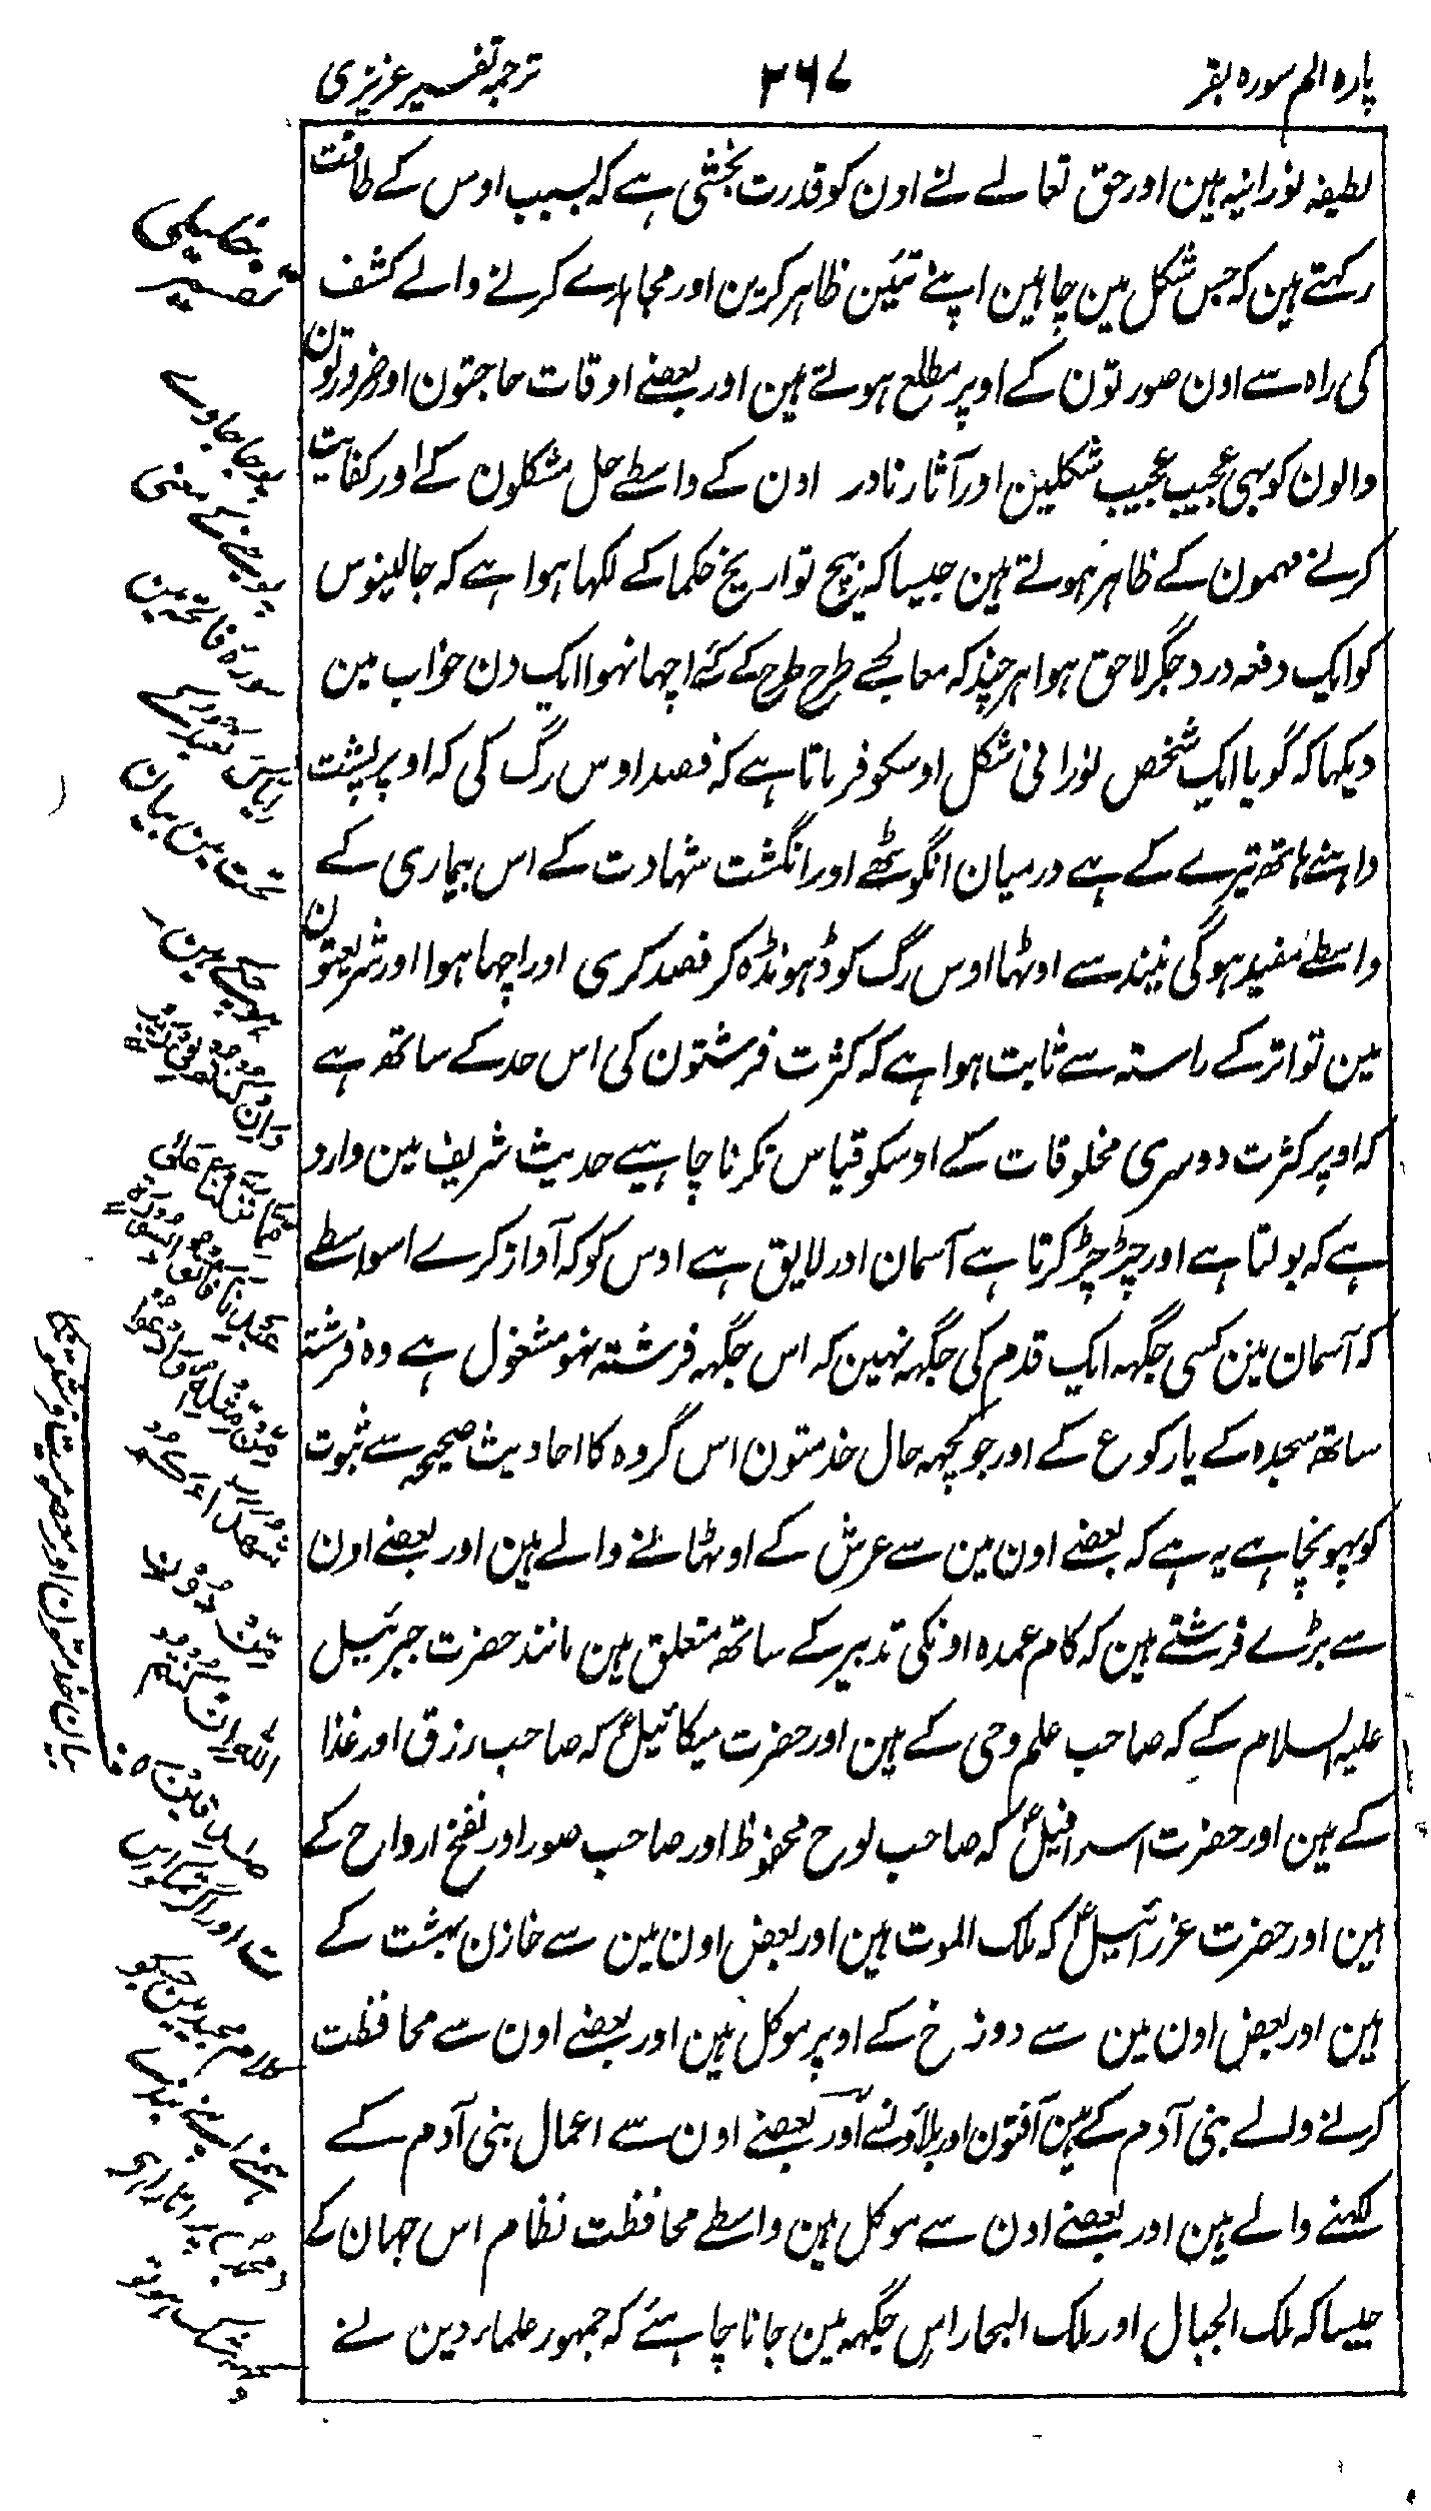 پارہ الم سورہ بقر
۳۶۷
ترجمہ تفسیر عزیزی
لطیفہ نورانیہ ہین اور حق تعالے نے اون کو قدرت بخشی ہے کہ بسبب اوس کے طاقت
رکہتے ہین کہ جس شکل مین چاہین اپنے تئین ظاہر کرین اور مجاہدے کرنے والے کشف
کی راہ سے اون صورتون کے اوپر مطلع ہوتے ہین اور بعضے اوقات حاجتون اور ضرورتون
والون کو بہی عجیب عجیب شکلین اور آثار نادر اون کے واسطے حل مشکلون کے اور کفایت
کرنے مہمون کے ظاہر ہوتے ہین جیسا کہ بیچ تواریخ حکما کے لکہا ہوا ہے کہ جالینوس
کو ایک دفعہ درد جگر لاحق ہوا ہر چند کہ معالجے طرح طرح کے کئے اچہا نہوا ایک دن خواب مین
دیکہا کہ گویا ایک شخص نورانی شکل اوسکو فرماتا ہے کہ فصد اوس رگ کی کہ اوپر پشت
داہنے ہاتھ تیرے کے ہے درمیان انگوٹھے اور انگشت شہادت کے اس بیماری کے
واسطے مفید ہوگی نیند سے اوٹہا اوس رگ کو ڈہونڈہ کر فصد کری اور اچہا ہوا اور شریعتون
مین تواتر کے راستہ سے ثابت ہوا ہے کہ کثرت فرشتون کی اس حد کے ساتھ ہے
کہ اوپر کثرت دوسری مخلوقات کے اوسکو قیاس نکرنا چاہیے حدیث شریف مین وارد
ہے کہ بولتا ہے اور چڑ چڑ کرتا ہے آسمان اور لایق ہے اوس کو کہ آواز کرے اسواسطے
کہ آسمان مین کسی جگہہ ایک قدم کی جگہہ نہین کہ اس جگہہ فرشتہ نہو مشغول ہے وہ فرشتہ
ساتھ سجدہ کے یا رکوع کے اور جو کچہہ حال خدمتون اس گروہ کا احادیث صحیحہ سے ثبوت
کو پہونچا ہے یہ ہے کہ بعضے اون مین سے عرش کے اوٹہانے والے ہین اور بعضے اون
سے بڑے فرشتے ہین کہ کام عمدہ اونکی تدبیر کے ساتھ متعلق ہین مانند حضرت جبرئیل
علیہ السلام کے کہ صاحب علم وحی کے ہین اور حضرت میکائیلؑ کہ صاحب رزق اور غذا
کے ہین اور حضرت اسرافیلؑ کہ صاحب لوح محفوظ اور صاحب صور اور نفخ ارواح کے
ہین اور حضرت عزرائیلؑ کہ ملک الموت ہین اور بعض اون مین سے خازن بہشت کے
ہین اور بعض اون مین سے دوزخ کے اوپر موکل ہین اور بعضے اون سے محافظت
کرنے والے بنی آدم کے ہین آفتون اور بلاؤنسے اور بعضے اون سے اعمال بنی آدم کے
لکہنے والے ہین اور بعضے اون سے موکل ہین واسطے محافظت نظام اس جہان کے
جیسا کہ ملک الجبال اور ملک البحار اس جگہہ مین جانا چاہئے کہ جمہور علماء دین نے
تفسیر
پوجا جاوے
پوجنے کے یعنی
سورہ فاتحہ مین
تحت مین بیان
ہو چکے مین
وَاِنْ كُنْتُمْ فِيْ رَيْبٍ
مِّمَّا نَزَّلْنَا عَلٰى
عَبْدِنَا فَاْتُوْا بِسُوْرَةٍ
مِّنْ مِّثْلِهٖ وَادْعُوْا
شُهَدَآءَكُمْ
مِّنْ دُوْنِ
اللّٰهِ اِنْ كُنْتُمْ
صٰدِقِيْنَ ه